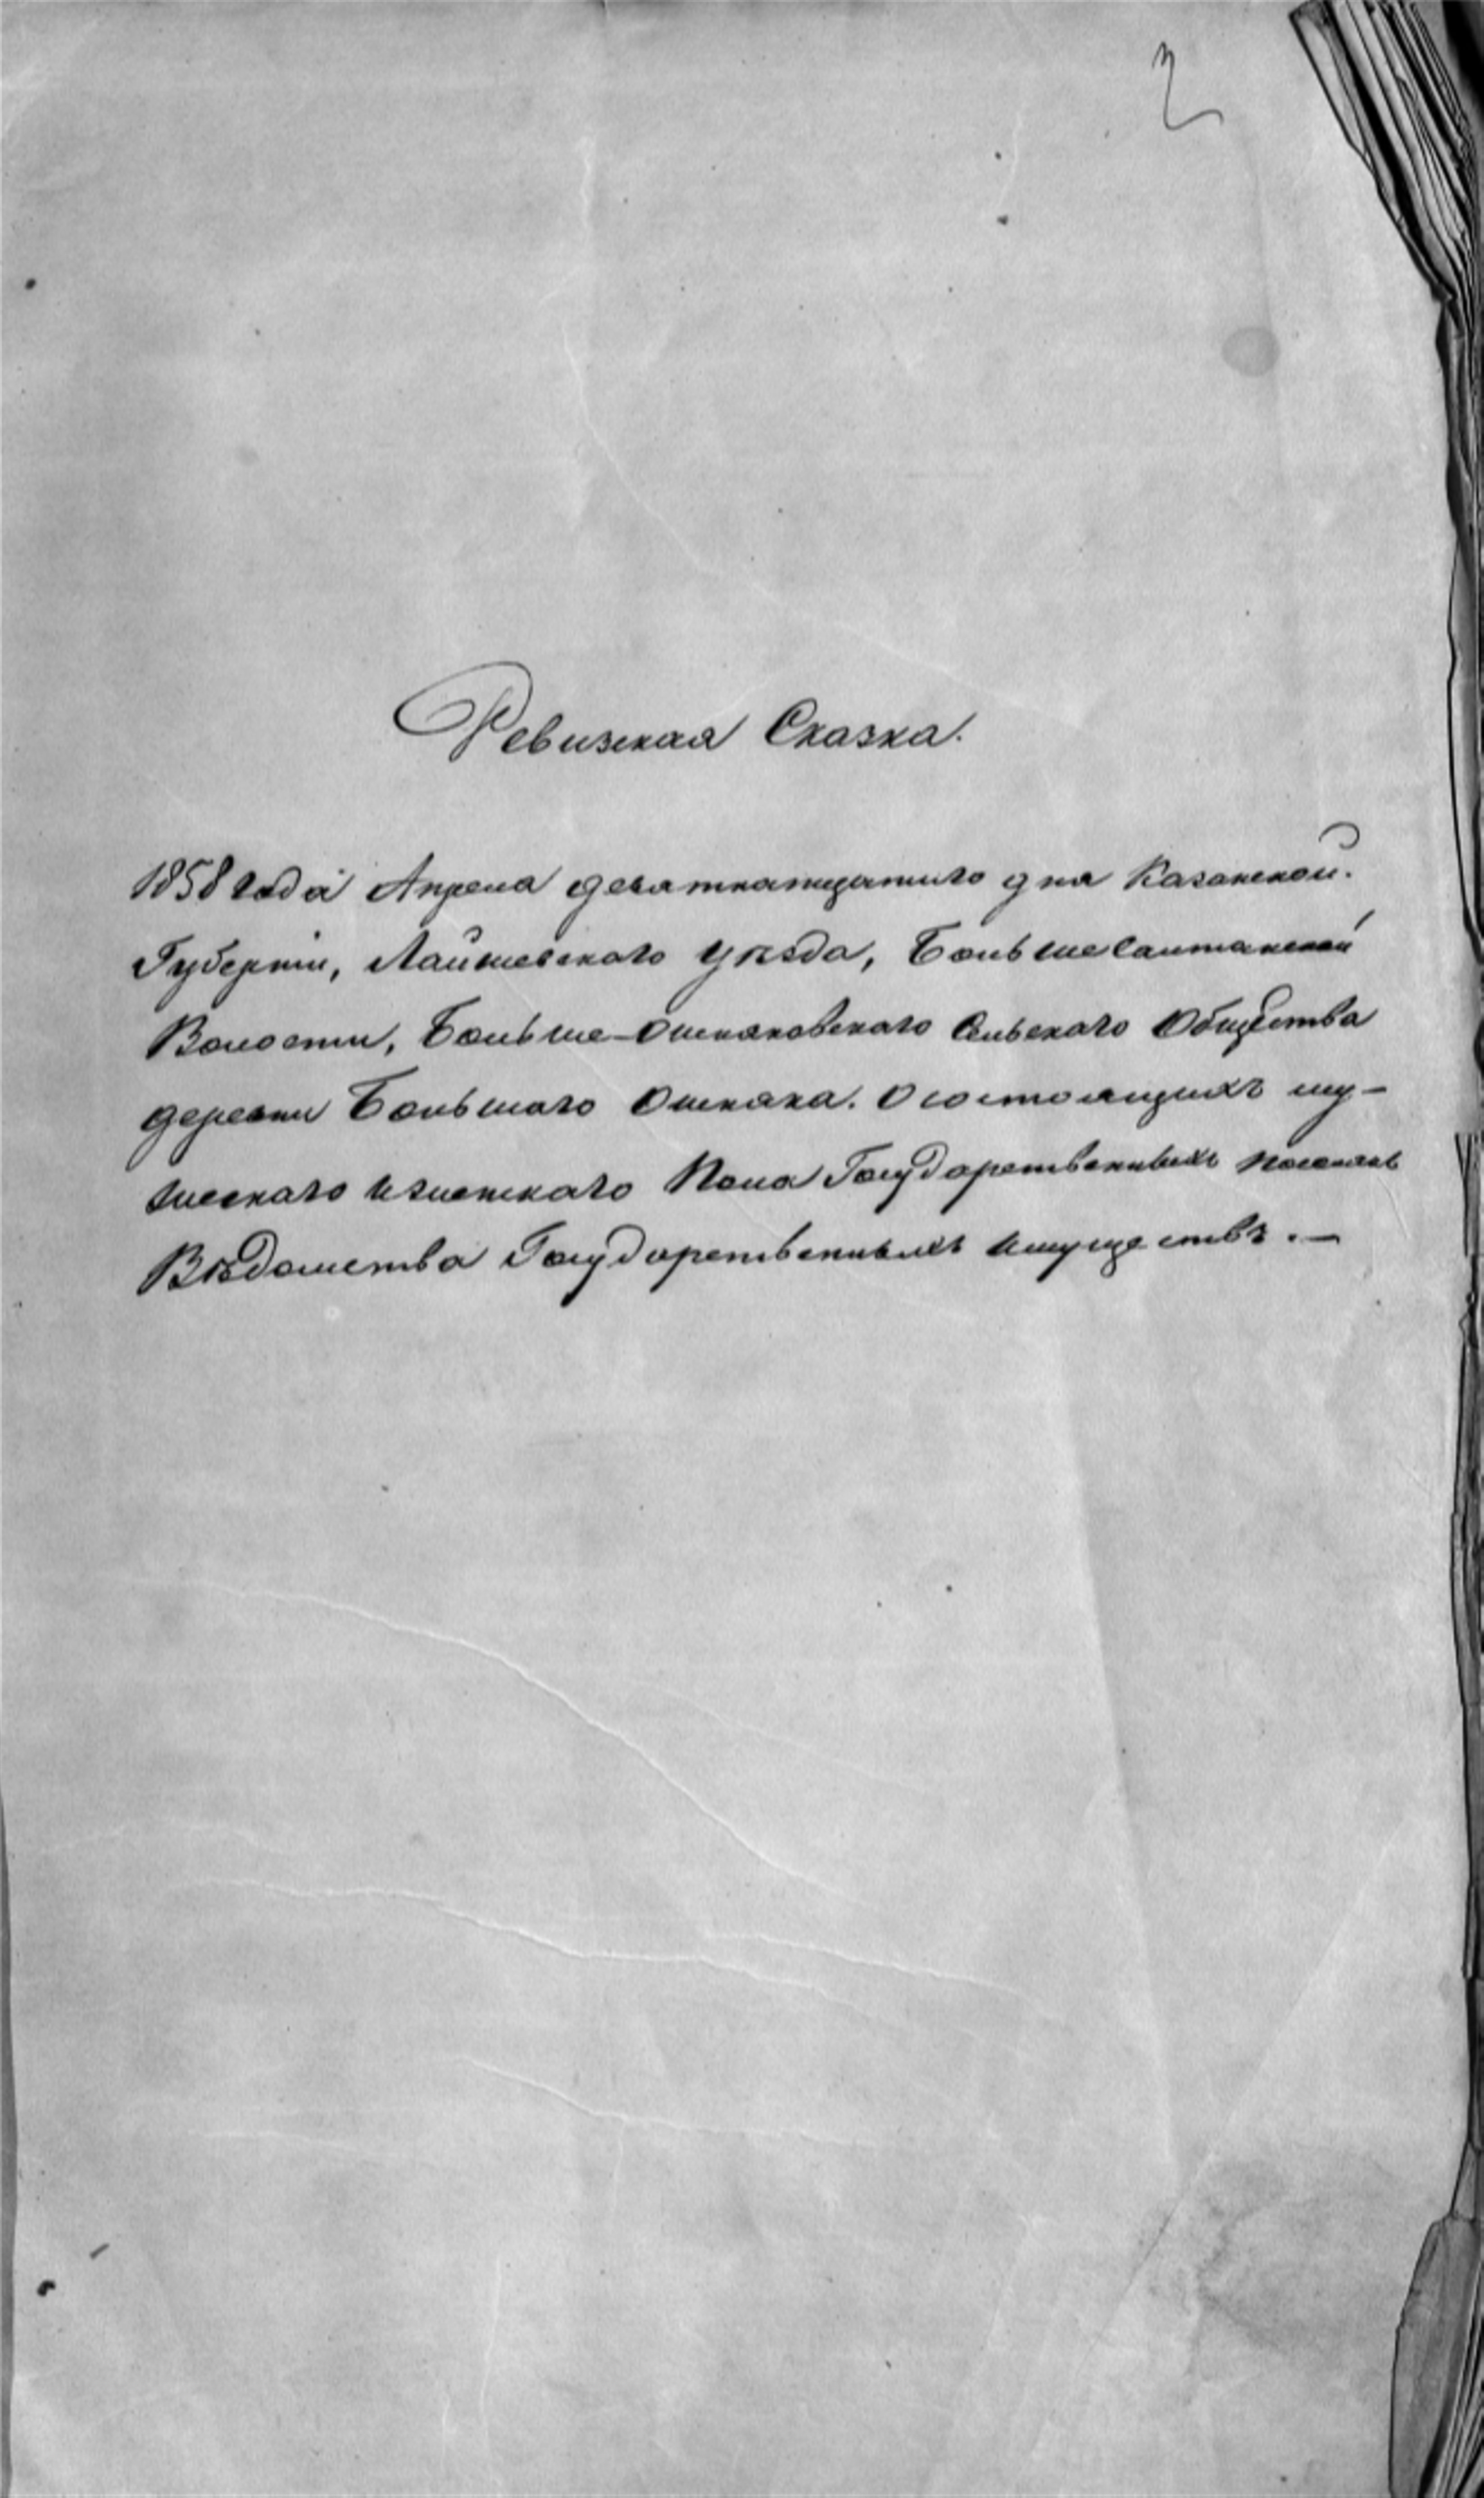 2
Ревизская Сказка.
1858 года Апреля девятнатцатого дня Казанской
Губернии, Лаишевскаго уѣзда, Больше
Волости, Больше-Ошняковскаго Сельскаго Общества
деревни Большаго Ошняка. О состоящихъ му-
жескаго и женскаго Пола Государственныхъ
Вѣдомства Государственныхъ Имуществъ.—